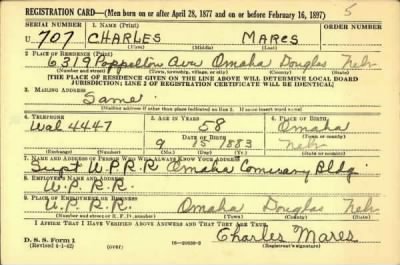 REGISTRATION CARD—(Men born on or after April 28, 1877 and on or before February 16, 1897) 5
SERIAL NUMBER 1. NAME (Print)
U 707 CHARLES MARES
(First) (Middle) (Last)
2. PLACE OF RESIDENCE (Print)
6319 Poppelton Ave Omaha Douglas Nebr
(Number and street) (Town, township, village, or city) (County) (State)
[THE PLACE OF RESIDENCE GIVEN ON THE LINE ABOVE WILL DETERMINE LOCAL BOARD
JURISDICTION; LINE 2 OF REGISTRATION CERTIFICATE WILL BE IDENTICAL]
3. MAILING ADDRESS
Same
[Mailing address if other than place indicated on line 2. If same insert word same]
4. TELEPHONE 5. AGE IN YEARS 6. PLACE OF BIRTH
Wal 4447 58 Omaha
DATE OF BIRTH (Town or county)
9 15 1883 Nebr
(Exchange) (Number) (Mo.) (Day) (Yr.) (State or country)
7. NAME AND ADDRESS OF PERSON WHO WILL ALWAYS KNOW YOUR ADDRESS
Supt U.P.R.R Omaha Bldg
8. EMPLOYER'S NAME AND ADDRESS
U.P.R.R.
9. PLACE OF EMPLOYMENT OR BUSINESS
U.P.R.R. Omaha Douglas Nebr
(Number and street or R. F. D. number) (Town) (County) (State)
I AFFIRM THAT I HAVE VERIFIED ABOVE ANSWERS AND THAT THEY ARE TRUE.
D. S. S. Form 1
(Revised 4-1-42) (over) Charles Mares
(Registrant's signature)